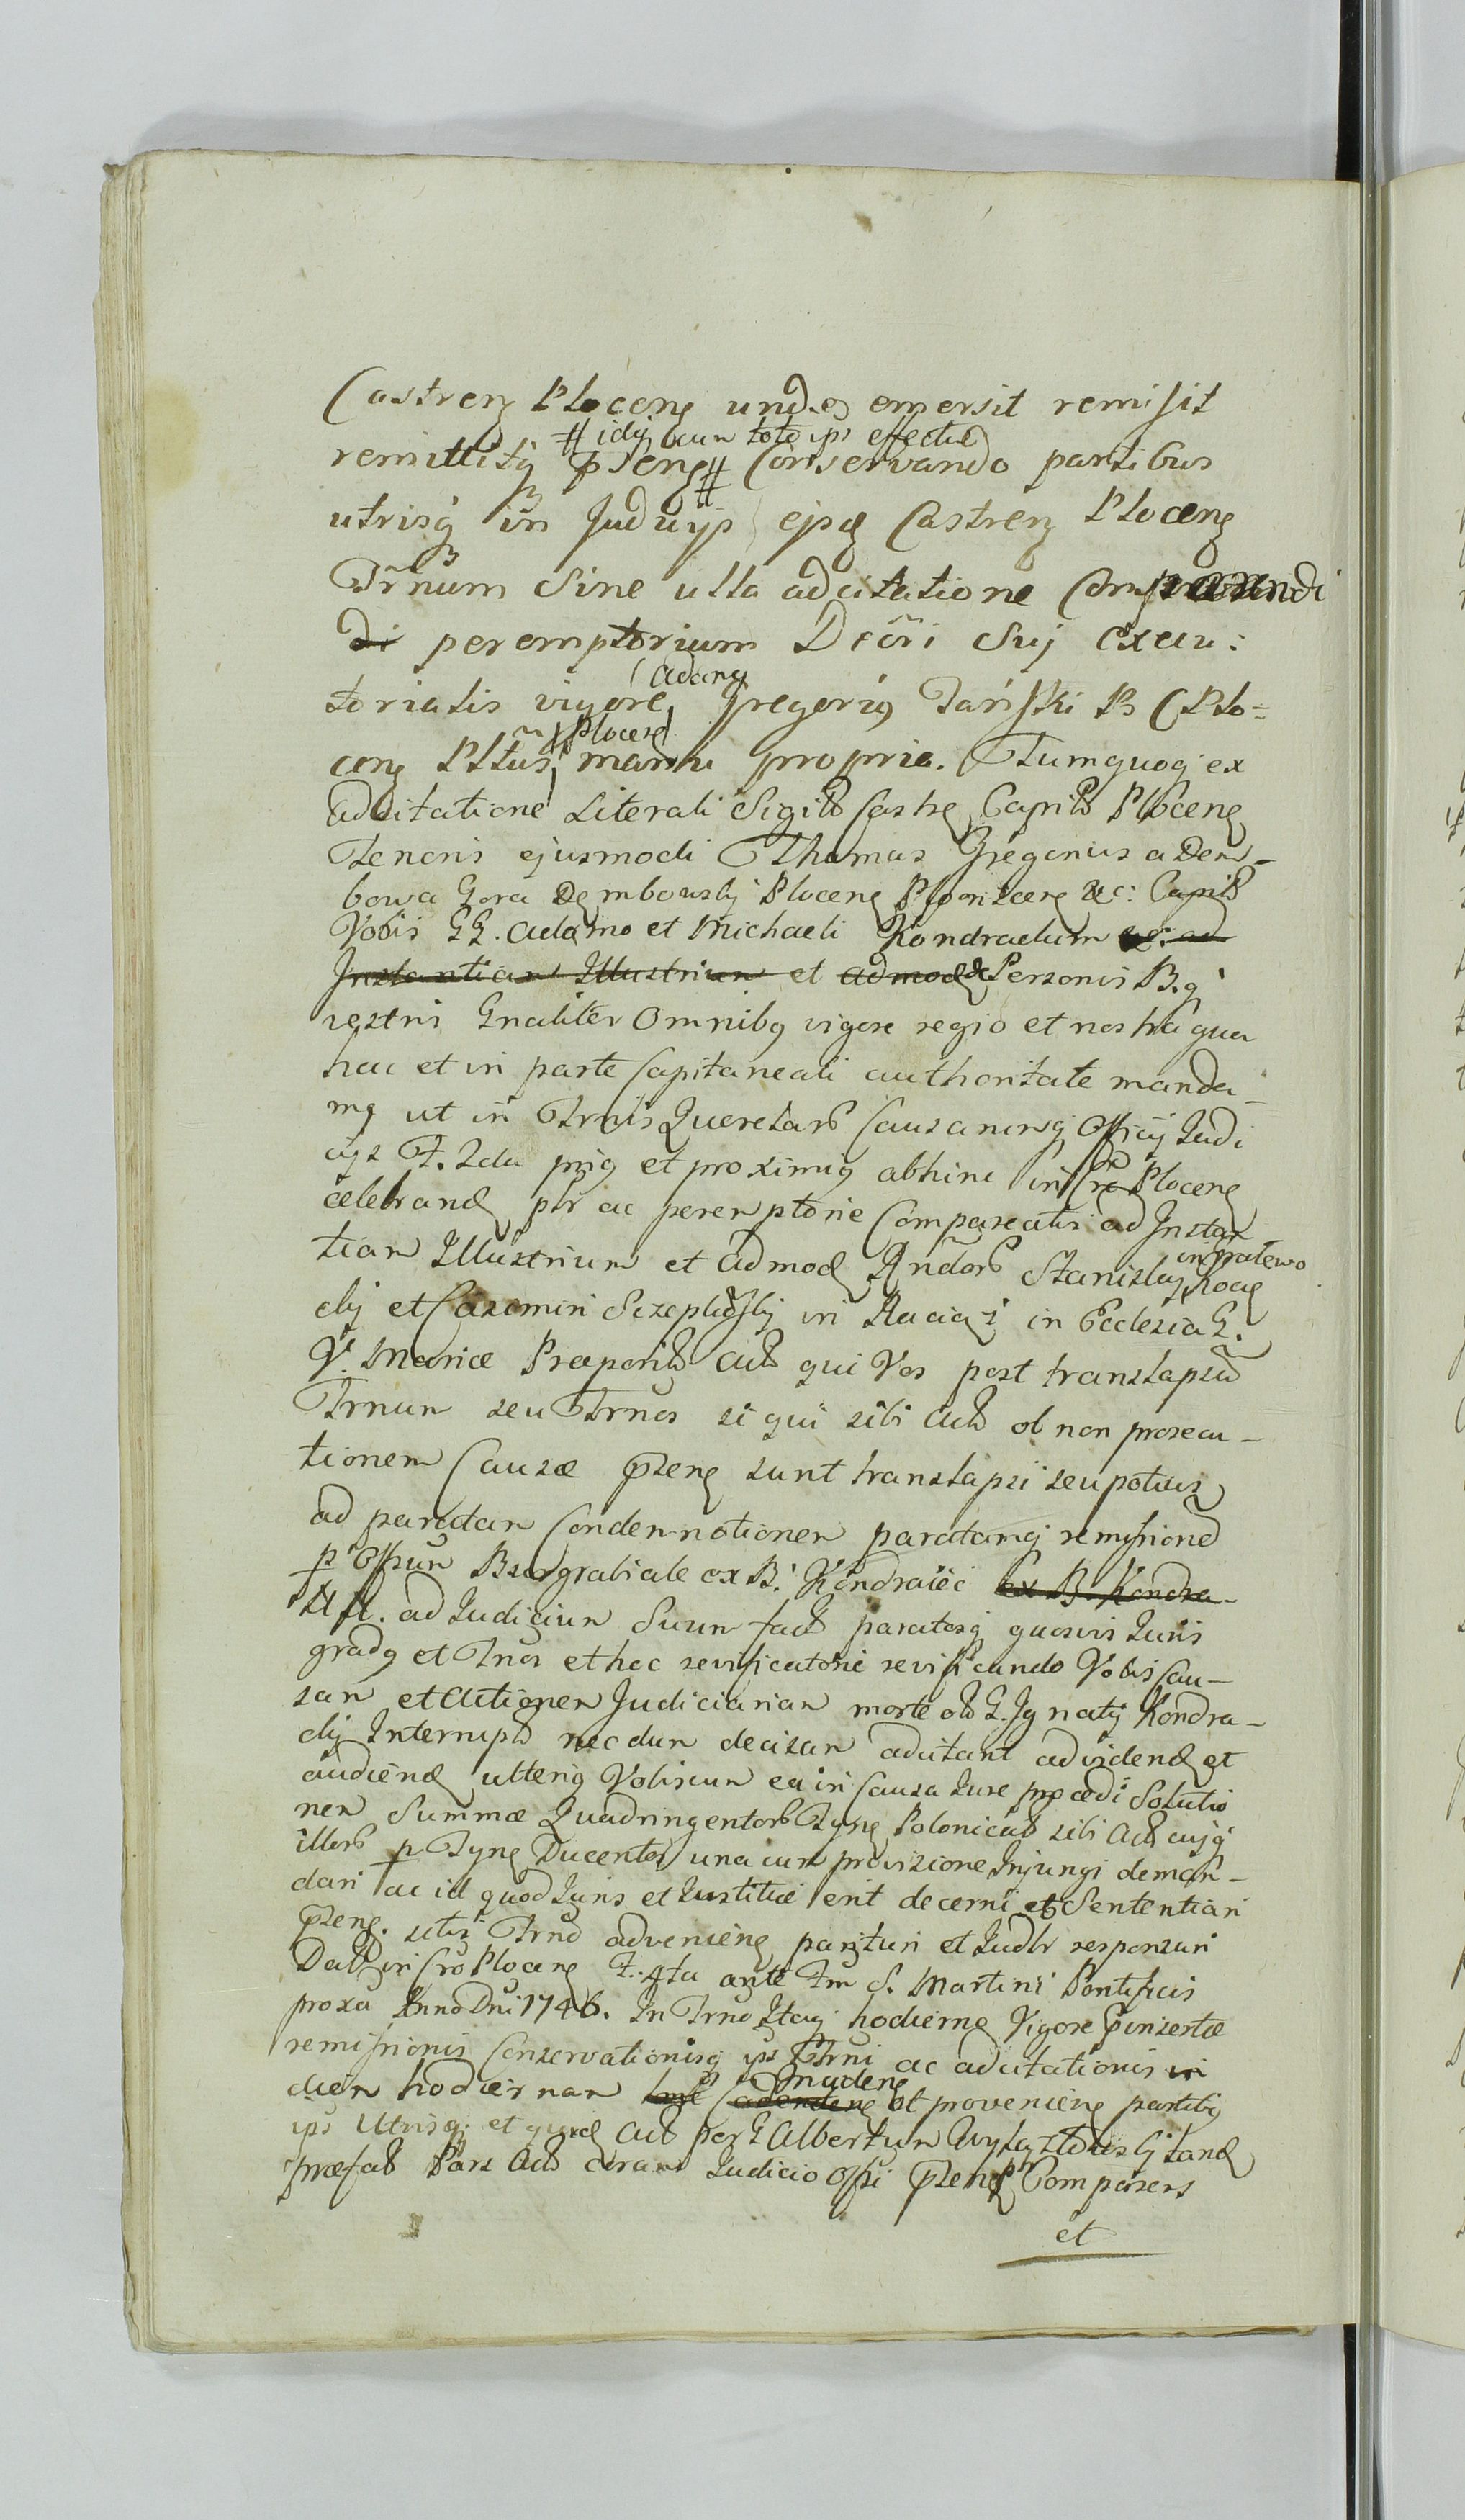 Castrenꝫ Plocenꝫ undeꝫ emersit remisit
# idqꝫ cum toto ips effectu
remittitqꝫ pꞩenꝫ # Conservando partibus
utrisqꝫ in Judicijs ejsꝫ Castrenꝫ Plocenꝫ
Tr̃num Sine ulla adcitatione Comparendi
di peremptorium Dećri Suj execu:
Adamꝫ
torialis vigore, Gregoriꝫ Tański B C Plo=
Plocen
cenꝫ Pltus, manu propria. Tumquoqꝫ ex
adcitatione Literali Sigill Castrꝫ Capitl Plocenꝫ
Tenoris ejusmodi Thomas Gregorius a Dem-
bowa Gora Dembowskj Plocenꝫ Plonscenꝫ &c: Capit
Vobis GG. Adamo et Michaeli Kondradum &: ad
Instantiam Illustrium et admod & Personis B.qꝫ
vestris Gnaliter Omnibꝫ vigore regio et nostra qua
hac et in parte Capitaneali authoritate manda-
mꝫ ut in Trnis Querelarꝫ Causarumqꝫ Officij Judi
cijs F. 2da priꝫ et proximiꝫ abhinc in Cro Plocenꝫ
celebrandꝫ plr ac peremptorie Compareatis ad Instan
in Gralewo
tiam Illustrium et Admodꝫ Rndorꝫ Stanislaj Koc
skj et Casimiri Szeplickj in Raciąż in Ecclesia B.
V. Mariæ Præposit Act qui Vos post translapsũ
Trnum seu Trnos si qui sibi Act ob non prosecu-
tionem Causæ pꞩenꝫ sunt translapsi seu potius
ad paratam Condemnationem paratamqꝫ remissionem
p Offum Burgrabiale ex B. Kondraiec ex B. Kondra
H fl. ad Judicium Suum fact paratosqꝫ quosvis Juris
gradꝫ et Trnos et hoc revificatorie revificando Vobis Cau-
sam et Actionem Judiciariam morte ol G. Ignatij Kondra-
ckj Interrupt necdum decisam adcitant ad videndꝫ et
audiendꝫ ulteriꝫ Vobiscum ea in Causa Jure procedi Solutio
nem Summæ Quadringentorꝫ Tynꝫ Polonical sibi Act cujqꝫ
illorꝫ p Tynꝫ Ducentos una cum provisione Injungi deman-
dari ac id quod Juris et Justitiæ erit decerni et Sententiari
pꞩenꝫ. sitis Trno advenienꝫ parituri et Judlr responsuri
Dat in Cro Plocenꝫ F. 4ta ante Fm S. Martini Pontificis
proxa Anno Dni 1746. In Trno Itaqꝫ hodierno Vigore pinsertæ
remissionis Conservationisqꝫ ips Trni ac adcitationis in
diem hodiernam
cadenꝫ et provenienꝫ partibꝫ
ips Utrisqꝫ et quidꝫ Act per G Albertum Tandꝫ
præfat Pars Act coram Judicio Offi pꞩenꝫ Comparens
et